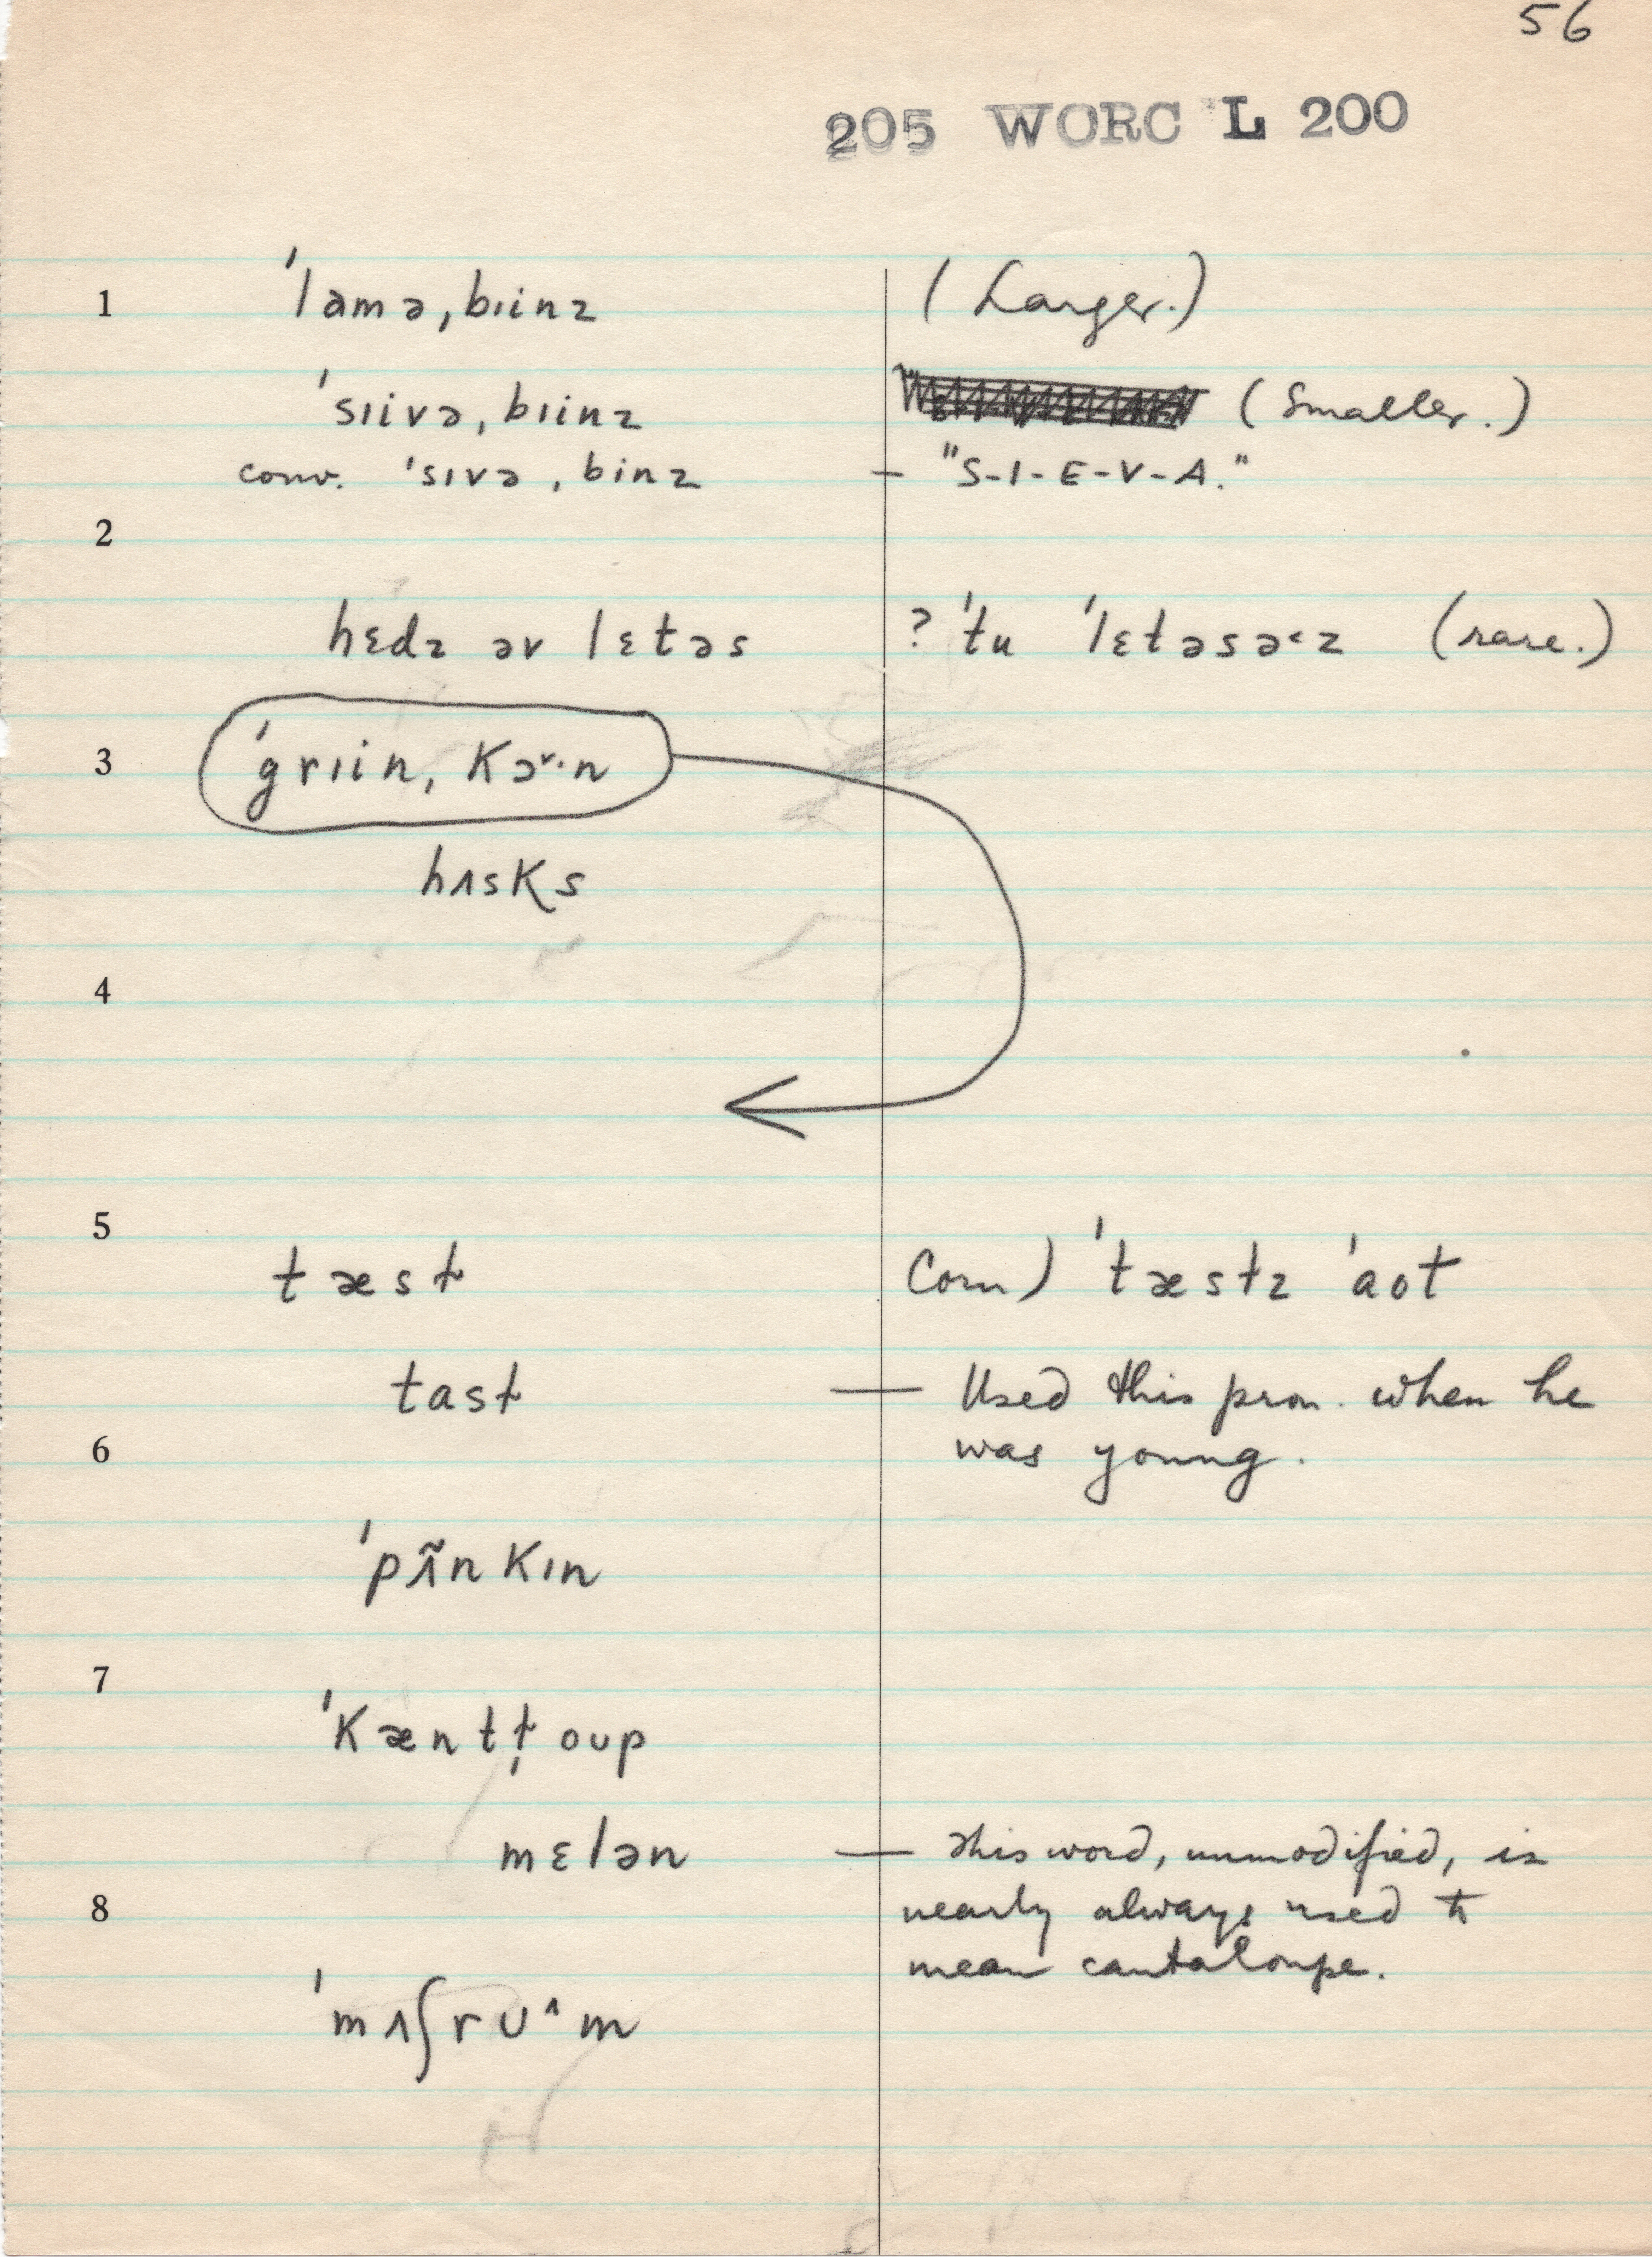 56
205 WORC L 200
1 ˈlamə,bɪinz (Larger.)
ˈsɪivə,bɪinz (Smaller.)
conv. ˈsɪvə,binz — "S-I-E-V-A."
2
hɛdz əv lɛtəs ? ˈtu ˈlɛtəsə˂z (rare.)
3 ˈgrɪin, kɔɚ·n
hʌsks
4
5
tæsł Corn) ˈtæsłz ˈaot
tasł — Used this pron. when he
6 was young.
ˈpʌ̃nkɪn
7
ˈkæntł̩oup
mɛlən — This word, unmodified, is
8 nearly always used to
mean cantaloupe.
ˈmʌʃrʊ^m